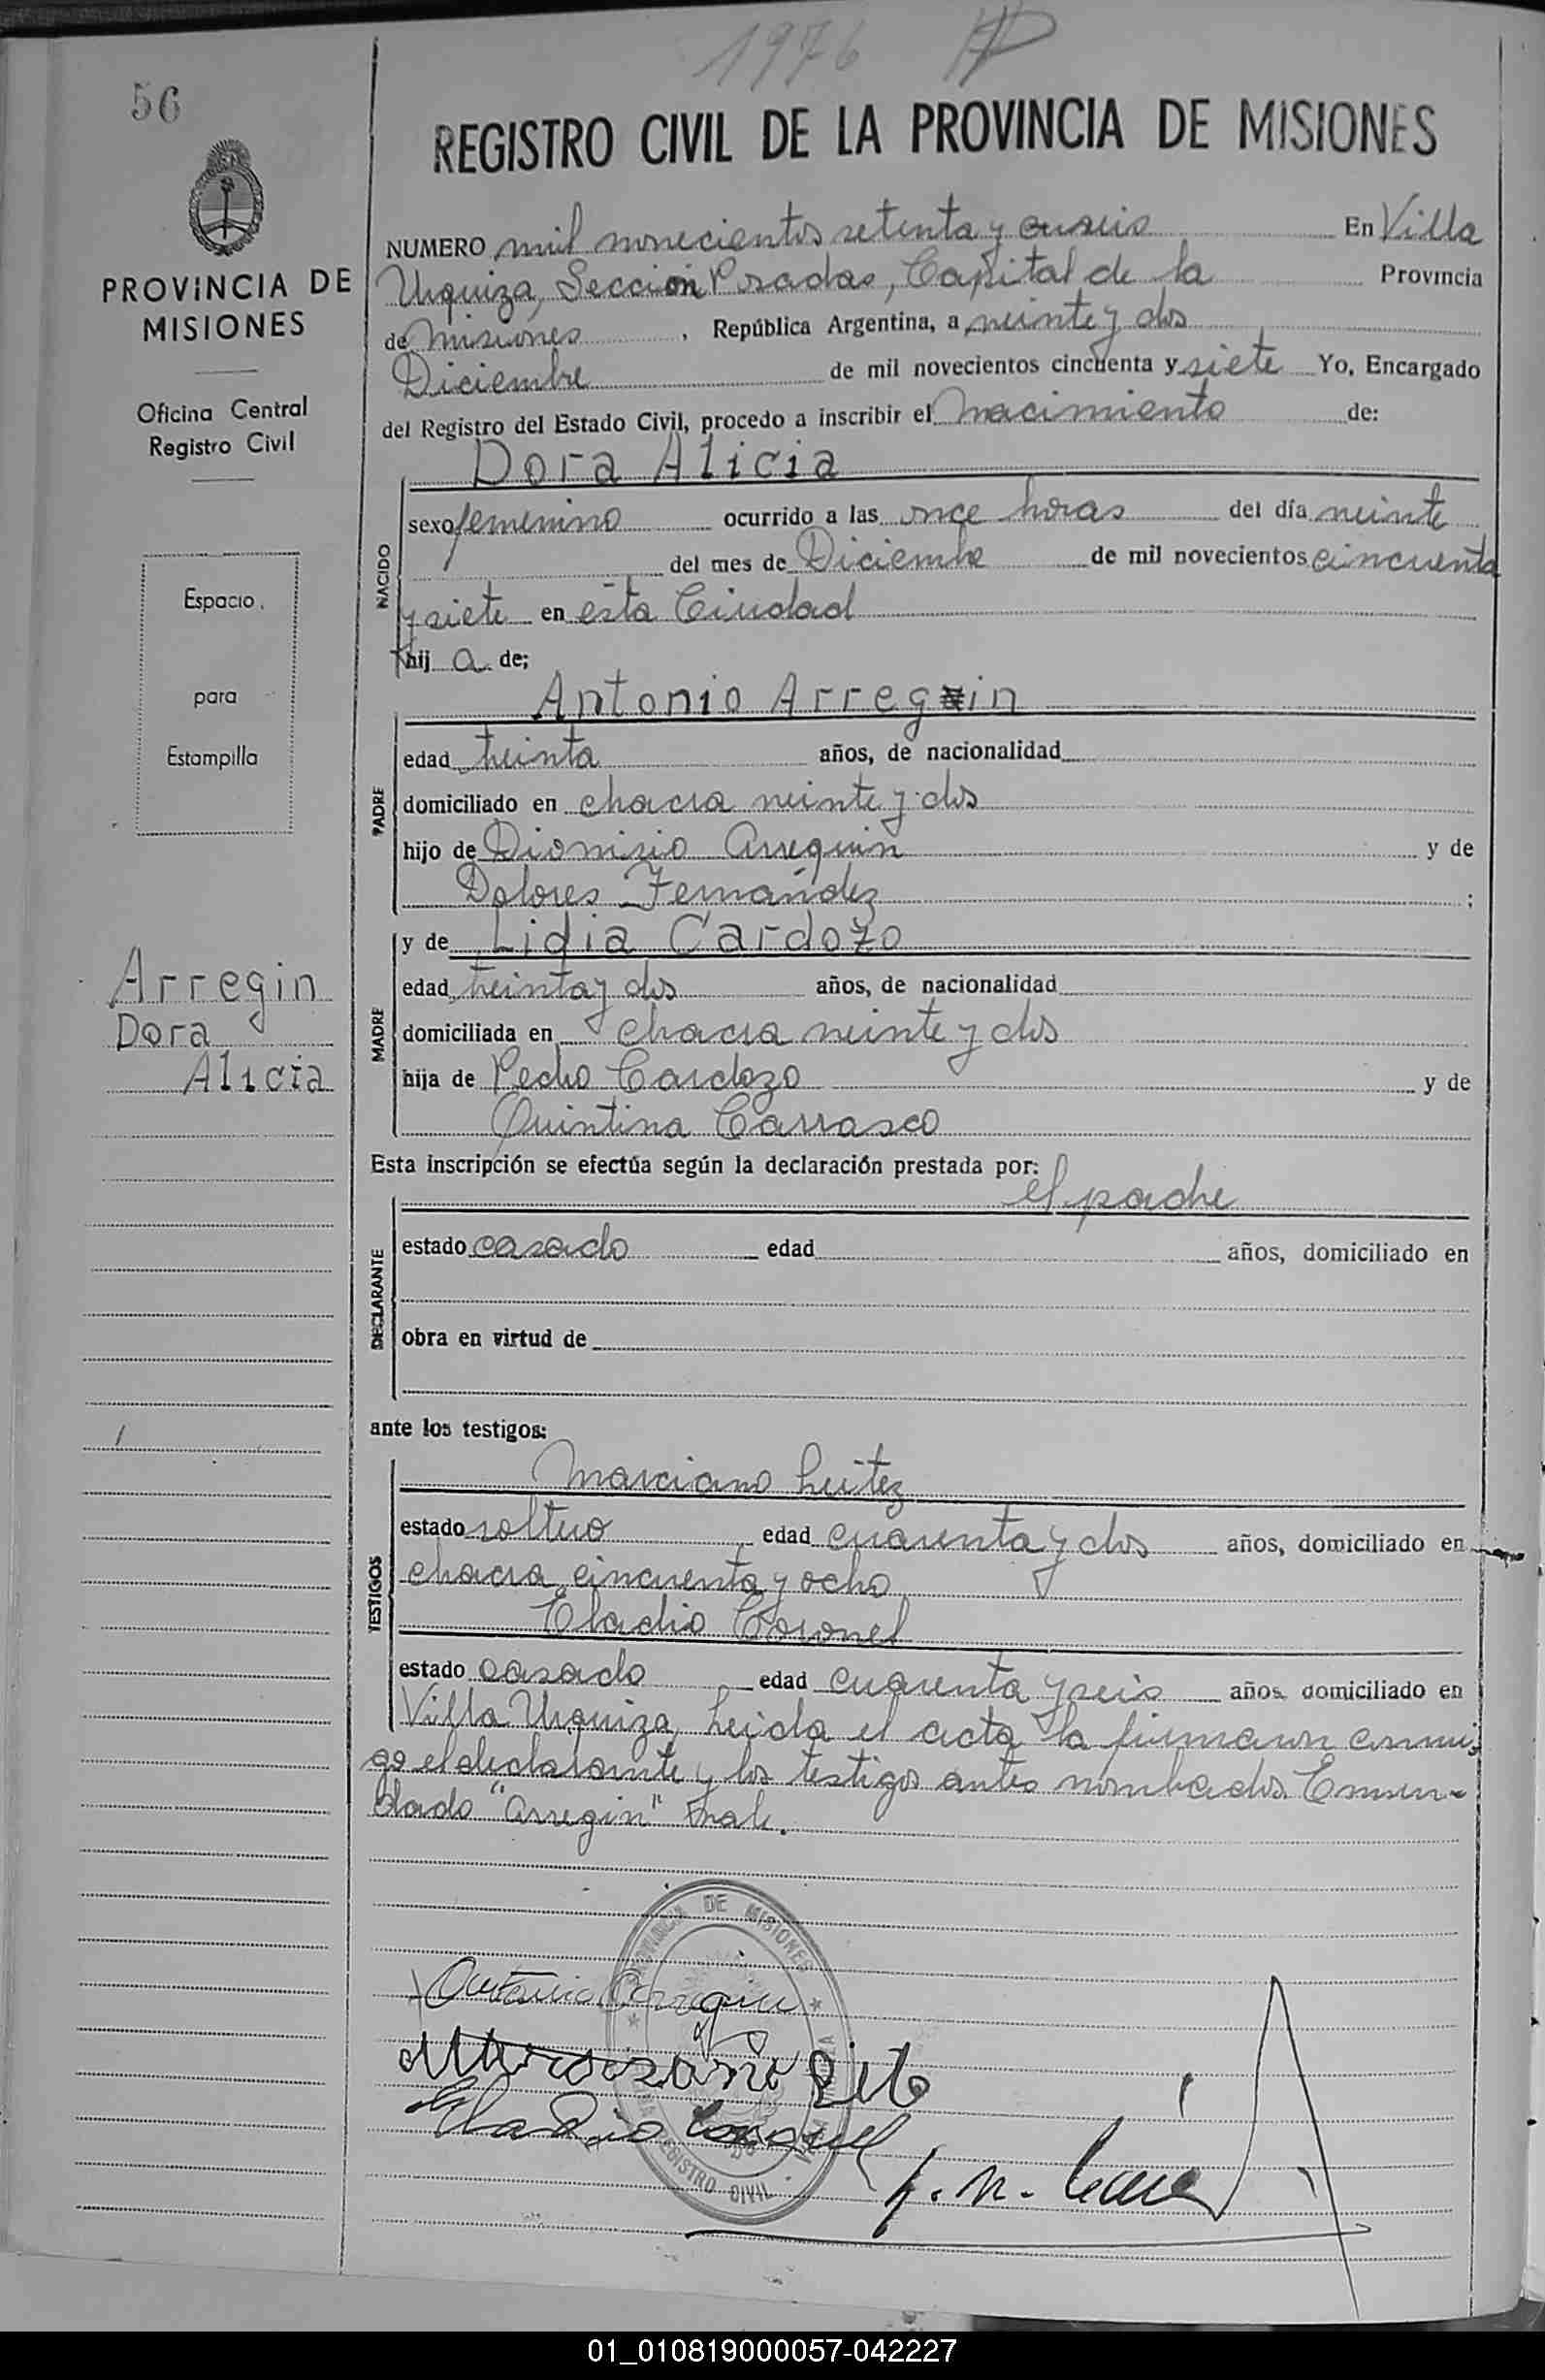 1976
56
REGISTRO CIVIL DE LA PROVINCIA DE MISIONES
PROVINCIA DE
MISIONES
Oficina Central
Registro Civil
Espacio
para
Estampilla
Arregin
Dora
Alicia
NUMERO mil novecientos setenta y seis En Villa
Urquiza, Sección Posadas, Capital de la Provincia
de Misiones, República Argentina, a veinte y dos
Diciembre de mil novecientos cincuenta y siete Yo, Encargado
del Registro del Estado Civil, procedo a inscribir el nacimiento de:
Dora Alicia
NACIDO
sexo femenino ocurrido a las once horas del día veinte
del mes de Diciembre de mil novecientos cincuenta
y siete en esta Ciudad
hij a de;
Antonio Arregin
PADRE
edad treinta años, de nacionalidad
domiciliado en chacra veinte y dos
hijo de Dionisio Arreguin y de
Dolores Fernández ;
y de Lidia Cardozo
MADRE
edad treinta y dos años, de nacionalidad
domiciliada en chacra veinte y dos
hija de Pedro Cardozo y de
Quintina Carrasco
Esta inscripción se efectúa según la declaración prestada por:
el padre
DECLARANTE
estado casado edad años, domiciliado en
obra en virtud de
ante los testigos:
Marciano Leitez
TESTIGOS
estado soltero edad cuarenta y dos años, domiciliado en
chacra cincuenta y ocho
Eladio Coronel
estado casado edad cuarenta y seis años domiciliado en
Villa Urquiza, Leida el acta la firmaron conmi-
go el declarante y los testigos antes nombrados. Enmen-
dado "Arregin" Vale.
PROVINCIA DE MISIONES
REGISTRO CIVIL
Antonio Arregin
Eladio Coronel
01_010819000057-042227